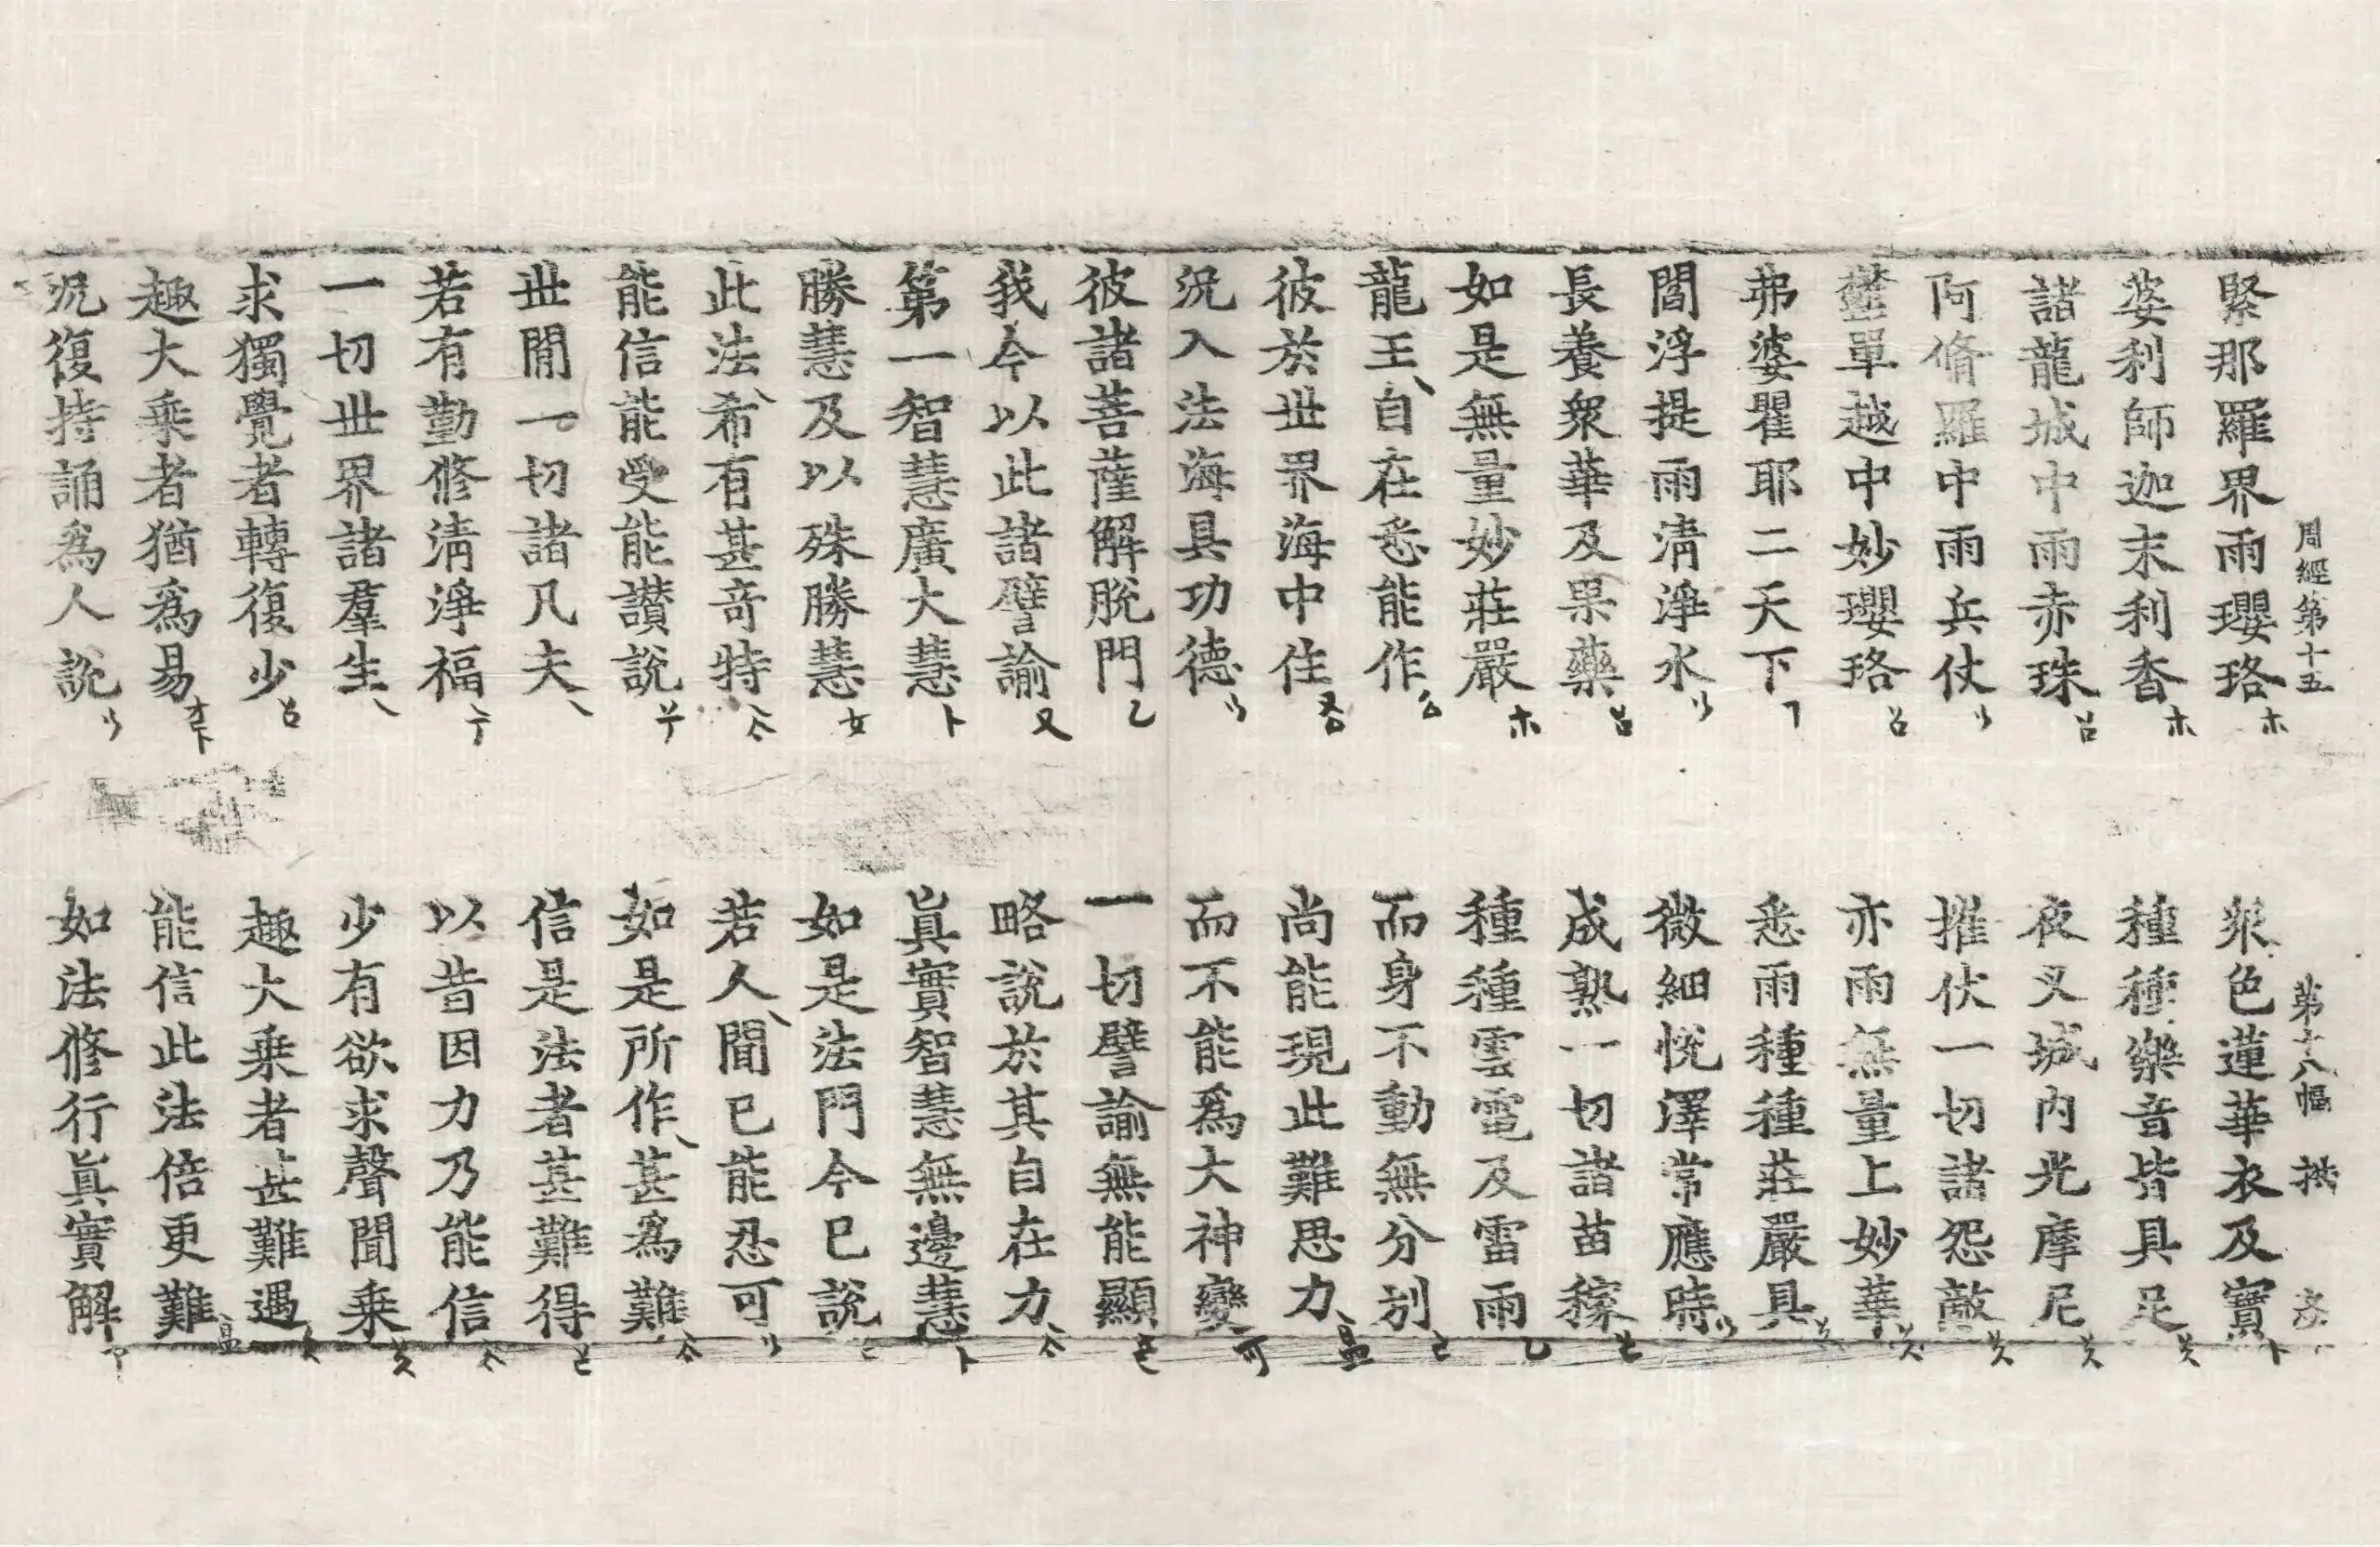 周經第十五 第十八幅
緊那羅界雨瓔珞 衆色蓮華衣及寶
婆利師迦末利香 種種樂音皆具足
諸龍城中雨赤珠 夜叉城內光摩尼
阿脩羅中雨兵仗 摧伏一切諸怨敵
鬱單越中妙瓔珞 亦雨無量上妙華
弗婆瞿耶二天下 悉雨種種莊嚴具
閻浮提雨清淨水 微細悅澤常應時
長養衆華及果藥 成熟一切諸苗稼
如是無量妙莊嚴 種種雲電及雷雨
龍王自在悉能作 而身不動無分別
彼於世界海中住 尚能現此難思力
況入法海具功德 而不能爲大神變
彼諸菩薩解脫門 一切譬諭無能顯
我今以此諸譬諭 略說於其自在力
第一智慧廣大慧 眞實智慧無邊慧
勝慧及以殊勝慧 如是法門今已說
此法希有甚奇特 若人聞已能忍可
能信能受能讚說 如是所作甚爲難
世間一切諸凡夫 信是法者甚難得
若有勤修清淨福 以昔因力乃能信
一切世界諸羣生 少有欲求聲聞乗
求獨覺者轉復少 趣大乗者甚難遇
趣大乗者猶爲易 能信此法倍更難
況復持誦爲人說 如法修行眞實解